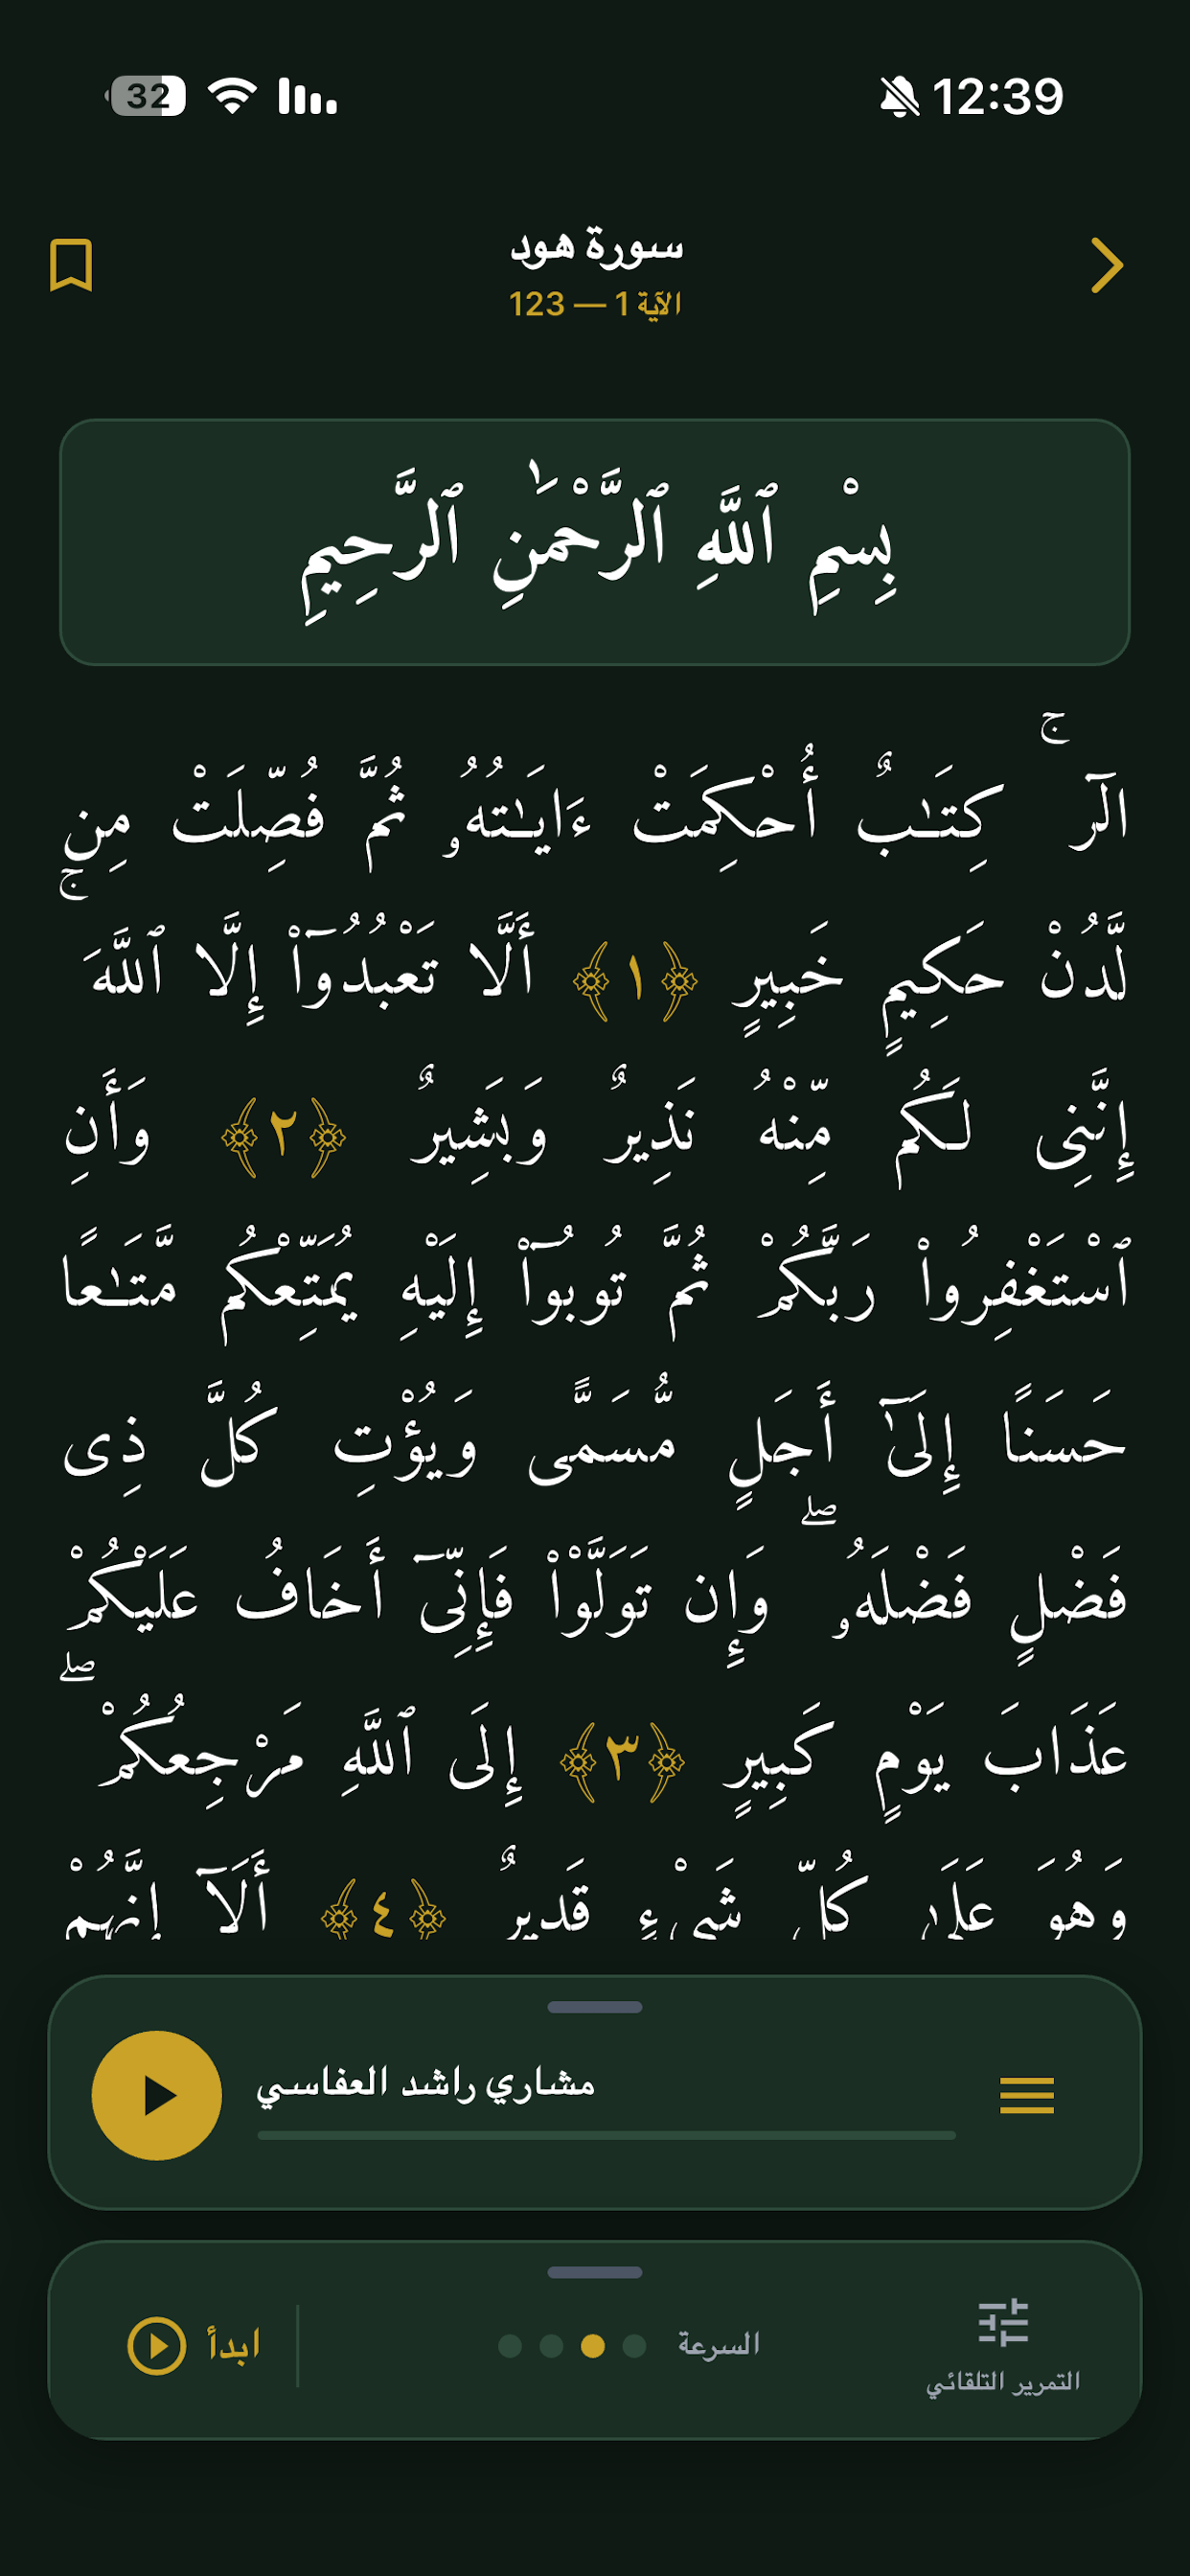 12:39
32
سورة هود
الآية 1 — 123
بِسْمِ ٱللَّهِ ٱلرَّحْمَٰنِ ٱلرَّحِيمِ
الٓر ۚ كِتَـٰبٌ أُحْكِمَتْ ءَايَـٰتُهُۥ ثُمَّ فُصِّلَتْ مِن
لَّدُنْ حَكِيمٍ خَبِيرٍ ﴿١﴾ أَلَّا تَعْبُدُوٓا۟ إِلَّا ٱللَّهَ ۚ
إِنَّنِى لَكُم مِّنْهُ نَذِيرٌ وَبَشِيرٌ ﴿٢﴾ وَأَنِ
ٱسْتَغْفِرُوا۟ رَبَّكُمْ ثُمَّ تُوبُوٓا۟ إِلَيْهِ يُمَتِّعْكُم مَّتَـٰعًا
حَسَنًا إِلَىٰٓ أَجَلٍ مُّسَمًّى وَيُؤْتِ كُلَّ ذِى
فَضْلٍ فَضْلَهُۥ ۖ وَإِن تَوَلَّوْا۟ فَإِنِّىٓ أَخَافُ عَلَيْكُمْ
عَذَابَ يَوْمٍ كَبِيرٍ ﴿٣﴾ إِلَى ٱللَّهِ مَرْجِعُكُمْ ۖ
وَهُوَ عَلَىٰ كُلِّ شَىْءٍ قَدِيرٌ ﴿٤﴾ أَلَآ إِنَّهُمْ
مشاري راشد العفاسي
السرعة
ابدأ
التمرير التلقائي